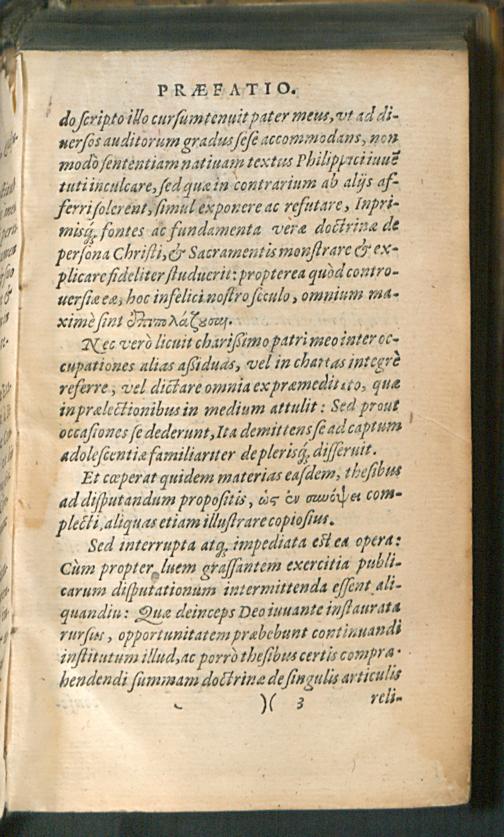 PRÆFATIO.
do scripto illo cursum tenuit pater meus, vt ad di-
uersos auditorum gradus sese accommodans, non
modò sententiam natiuam textus Philippici iuuē
tuti inculcare, sed quæ in contrarium ab alijs af-
ferri solerent, simul exponere ac refutare, Inpri-
misq́; fontes ac fundamenta veræ doctrinæ de
persona Christi, & Sacramentis monstrare & ex-
plicare fideliter studuerit: propterea quòd contro-
uersiæ eæ, hoc infelici nostro seculo, omnium ma-
ximè sint ἐπιπολάζουσαι.
Nec verò licuit charissimo patri meo inter oc-
cupationes alias assiduas, vel in chartas integrè
referre, vel dictare omnia ex præmeditato, quæ
in prælectionibus in medium attulit: Sed prout
occasiones se dederunt, Ita demittens se ad captum
adolescentiæ familiariter de plerisq́; disseruit.
Et cœperat quidem materias easdem, thesibus
ad disputandum propositis, ὡς ἐν συνόψει com-
plecti, aliquas etiam illustrare copiosius.
Sed interrupta atq́; impedita est ea opera:
Cùm propter luem grassantem exercitia publi-
carum disputationum intermittenda essent ali-
quandiu: Quæ deinceps Deo iuuante instaurata
rursus, opportunitatem præbebunt continuandi
institutum illud, ac porrò thesibus certis compræ-
hendendi summam doctrinæ de singulis articulis
)( 3 reli-